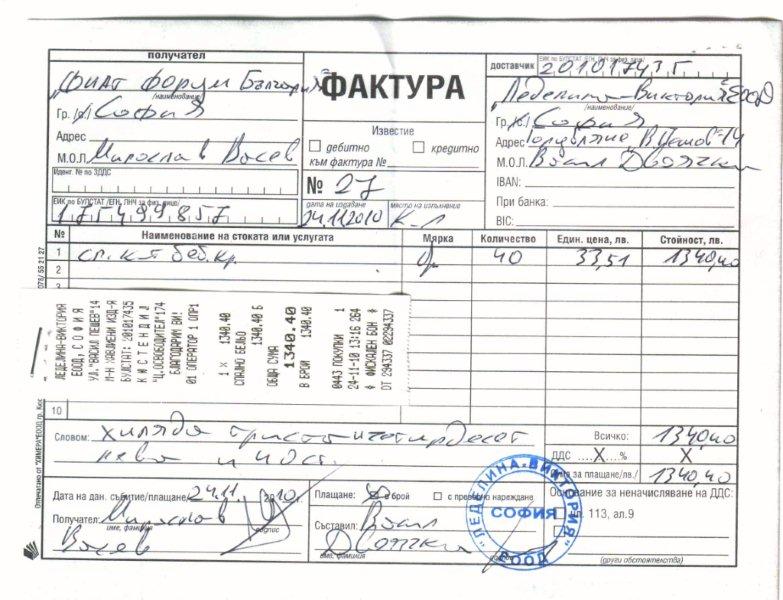 получател
"Фиат Форум България"
/наименование/
Гр. /с/ София
Адрес
М.О.Л. Мирослав Восев
Идент. № по ЗДДС
ЕИК по БУЛСТАТ /ЕГН, ЛНЧ за физ. лице/
175499857
ФАКТУРА
Известие
дебитно кредитно
към фактура №
№ 27
дата на издаване
24.11.2010
място на изпълнение
К-л
доставчик
ЕИК по БУЛСТАТ /ЕГН, ЛНЧ за физ. лице/
201017435
"Леделина-Виктория" ЕООД
/наименование/
Гр. /с./ София
Адрес
М.О.Л.
IBAN:
При банка:
BIC:
№ Наименование на стоката или услугата Мярка Количество Един. цена, лв. Стойност, лв.
1 сп. к-т беб. кр. 40 33,51 1340,40
2
10
ЛЕДЕЛИНА-ВИКТОРИЯ
ЕООД, СОФИЯ
УЛ."ВАСИЛ ПЕШЕВ"14
М-Н ХАВЛИЕНИ ИЗД-Я
БУЛСТАТ: 201017435
КЮСТЕНДИЛ
"Ц.ОСВОБОДИТЕЛ"174
БЛАГОДАРИМ ВИ!
01 ОПЕРАТОР 1 ОПР1
1 x 1340.40
СПАЛНО БЕЛЬО 1340.40 Б
ОБЩА СУМА 1340.40
В БРОЙ 1340.40
0443 ПОКУПКИ 1
24-11-10 13:16 264
ФИСКАЛЕН БОН
DT 294337 02294337
Словом: хиляда триста и четирдесет
лева и 40 ст.
Всичко: 1340,40
ДДС X % X
Сума за плащане /лв./ 1340,40
Дата на дан. събитие/плащане/ 24.11.2010
Получател: Мирослав
име, фамилия подпис
Восев
Плащане: в брой с преводно нареждане
Съставил:
име, фамилия
Основание за неначисляване на ДДС:
чл. 113, ал.9
(други обстоятелства)
"ЛЕДЕЛИНА-ВИКТОРИЯ"
СОФИЯ
ЕООД